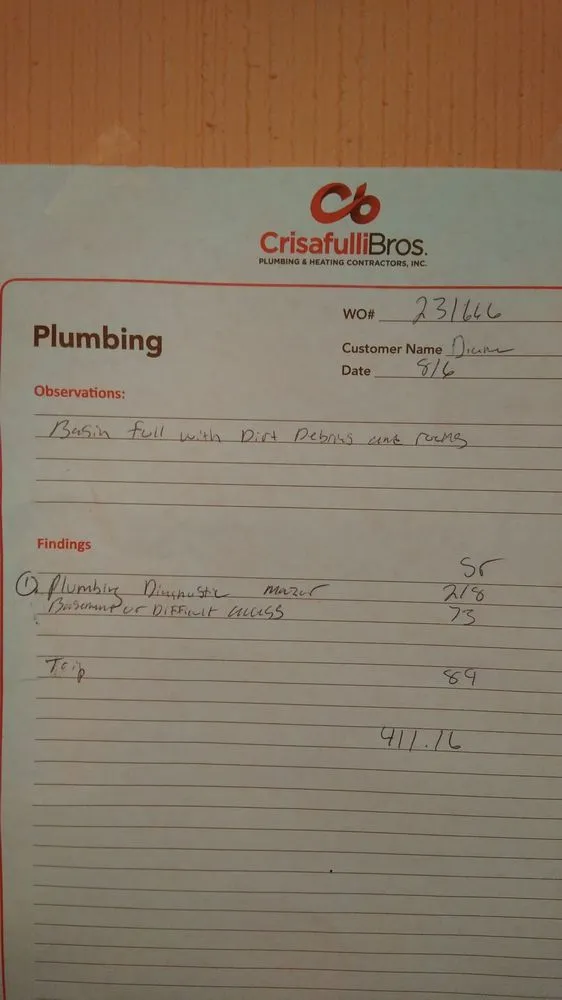 Cb
CrisafulliBros.
PLUMBING & HEATING CONTRACTORS, INC.
WO# 231646
Plumbing
Customer Name Diane
Date 8/6
Observations:
Basin full with Dirt Debris and rocks
Findings
Sr
① Plumbing Diagnostic Major 218
Basement or Difficult access 73
Trip 89
411.16